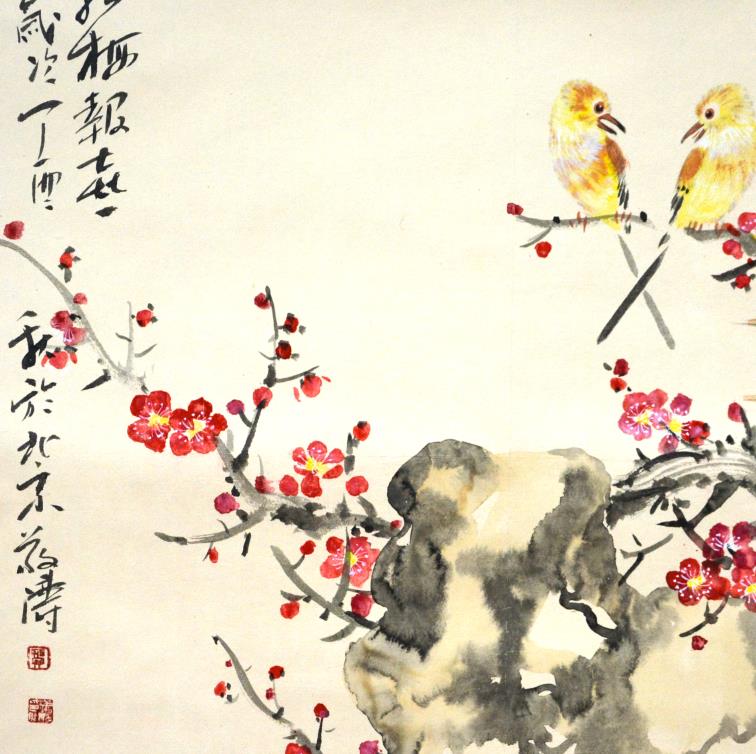 梅報喜
歲次丁酉秋於北京濤